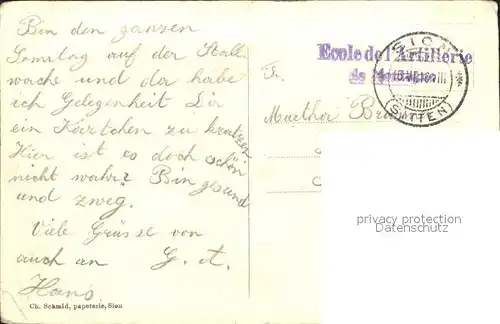 Bin den ganzen
Sonntag auf der Stall
wache und da habe
ich Gelegenheit Dir
ein Kärtchen zu kratzen
Hier ist es doch schön
nicht wahr? Bin gesund
und zweg.
Viele Grüsse von
auch an G. A.
Hans
Ch. Schmid, papeterie, Sion
Ecole de l'Artillerie
de
SION
(SITTEN)
Frl.
Marthor
privacy protection
Datenschutz